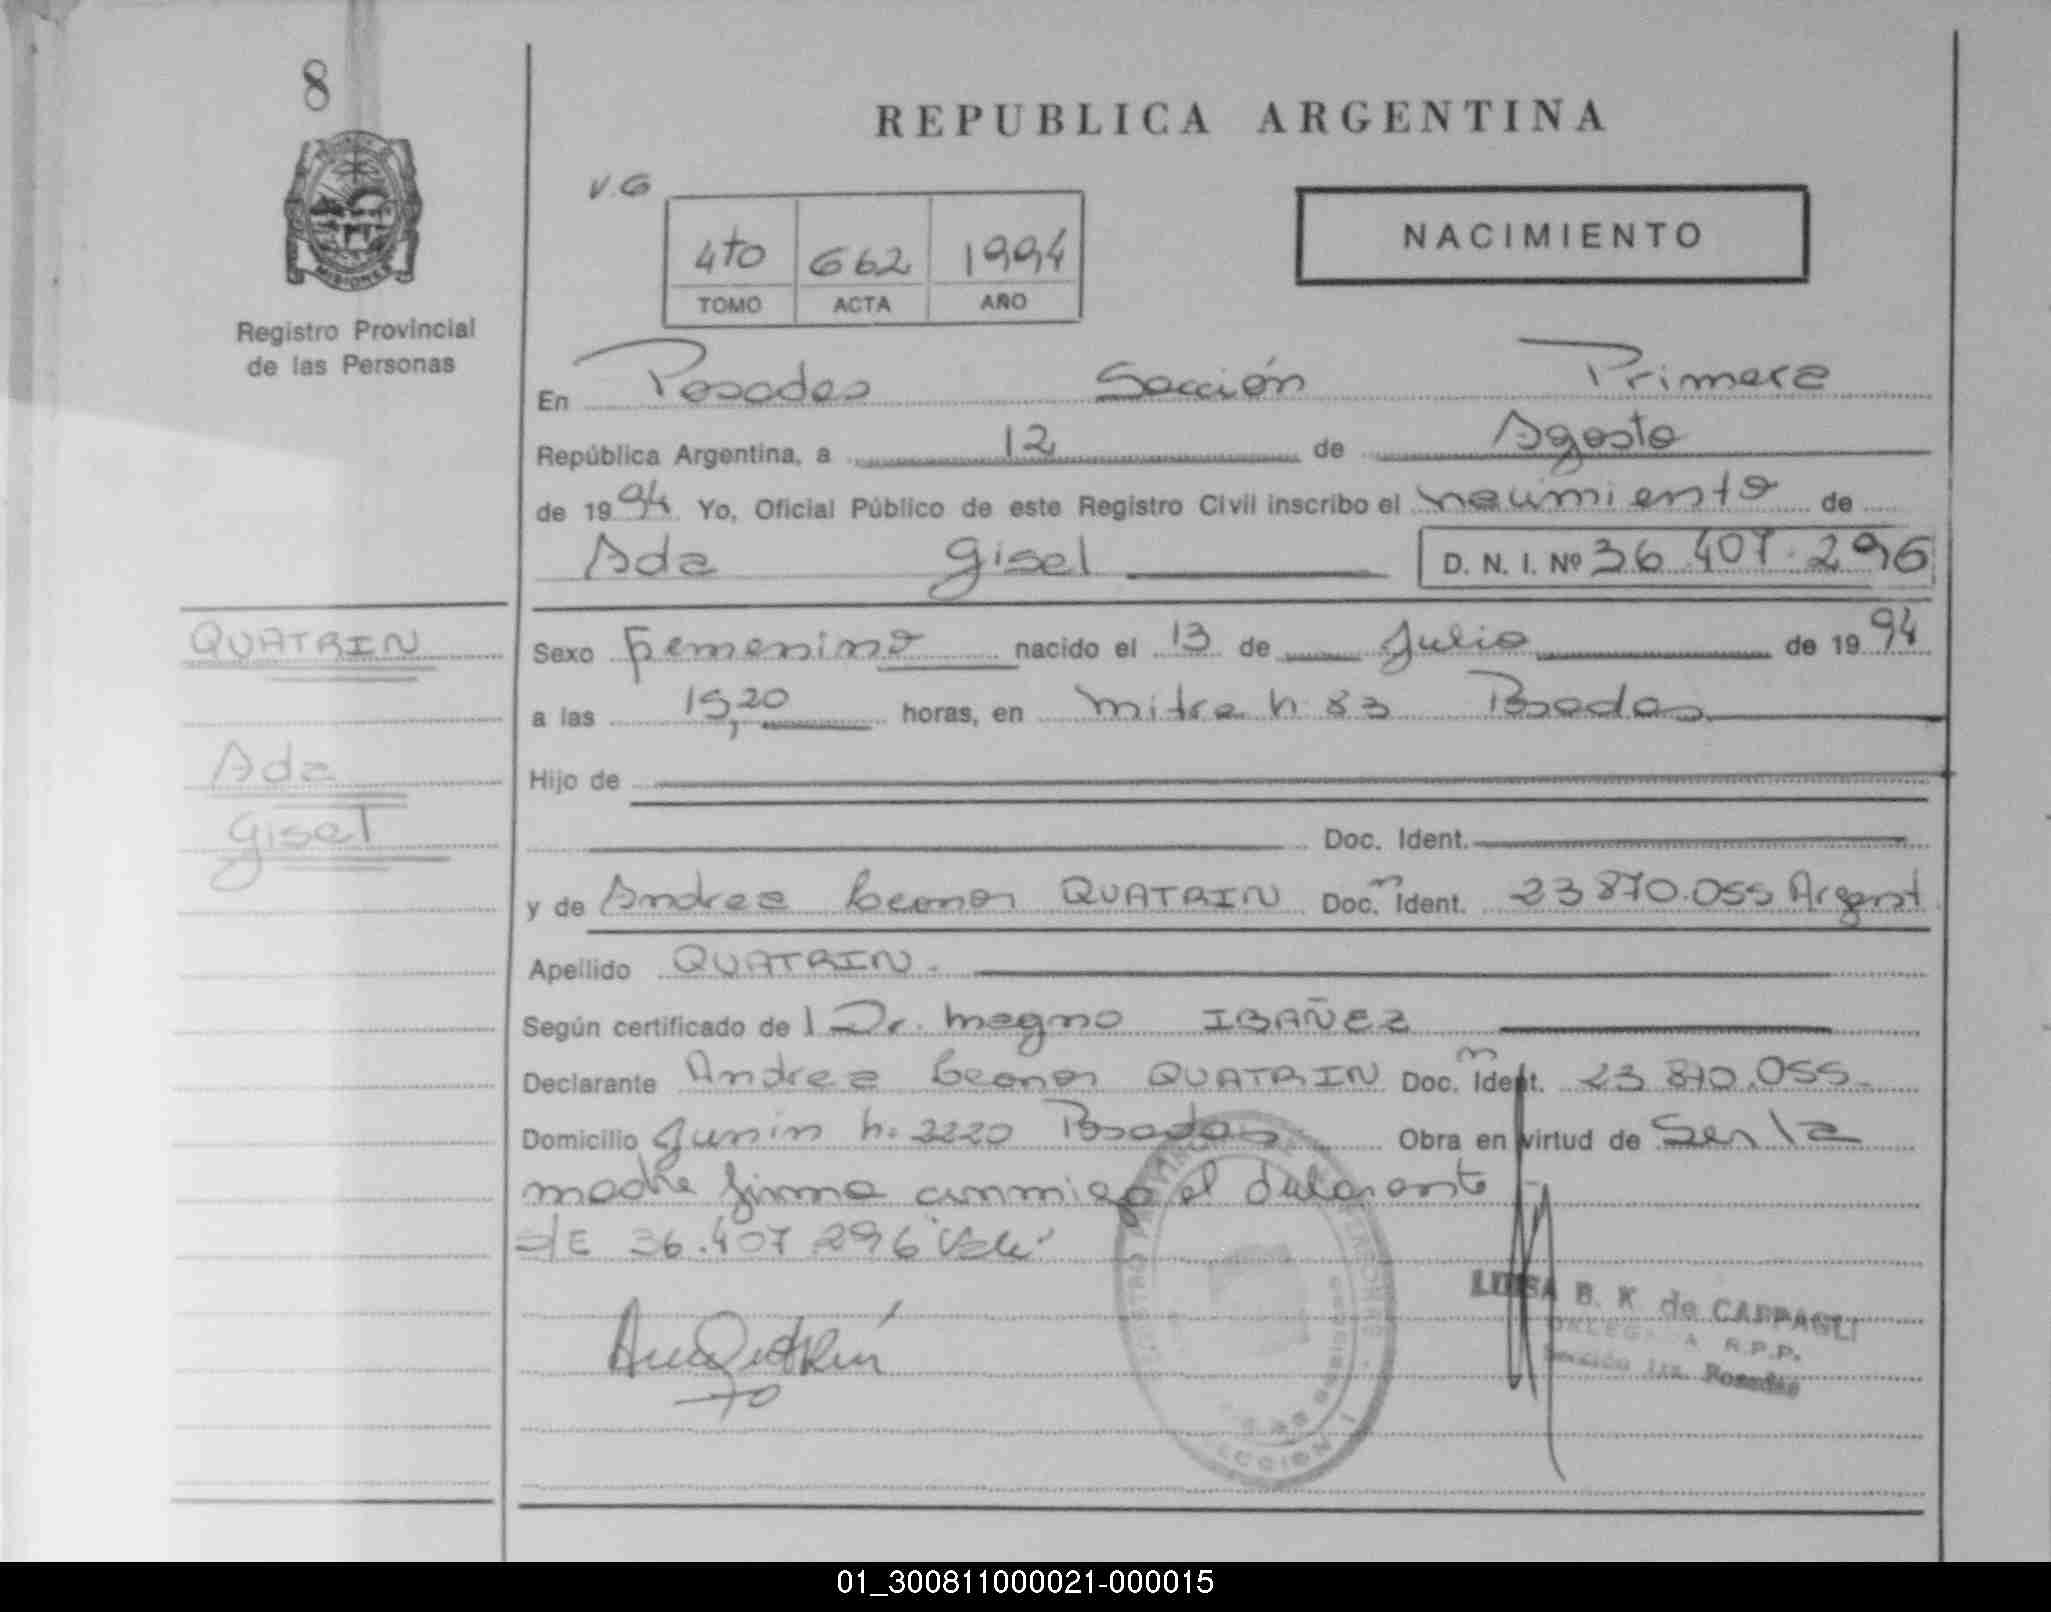 8
REPUBLICA ARGENTINA
V.G
4to 662 1994
TOMO ACTA AÑO
NACIMIENTO
MISIONES
Registro Provincial
de las Personas
En Posadas Sección Primera
República Argentina, a 12 de Agosto
de 1994 Yo, Oficial Público de este Registro Civil inscribo el nacimiento de
Ada Gisel D. N. I. Nº 36.407.296
QUATRIN
Sexo Femenino nacido el 13 de Julio de 1994
a las 15,20 horas, en mitre n 83 Posadas
Ada
Gisel
Hijo de
Doc. Ident.
y de Andrea Leonor QUATRIN Doc. Ident. 23 870.055 Argent
Apellido QUATRIN.
Según certificado de l Dr. magno IBAÑEZ
Declarante Andrea Leonor QUATRIN Doc. Ident. 23 870.055.
Domicilio Junin n. 2220 Posadas Obra en virtud de Ser la
madre firma conmigo el declarante
s/E 36.407 296 "Vale"
LUISA B. K. de CAPPAGLI
DELEGADA R.P.P.
Sección 1ra. Posadas
01_300811000021-000015